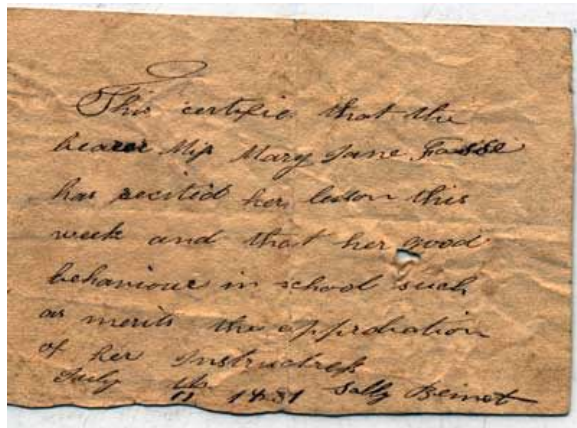 This certifie that the
bearer Miss Mary Jane
has recited her lesson this
week and that her good
behaviour in school such
as merits the approbation
of her Instructress
July 1831 Sally